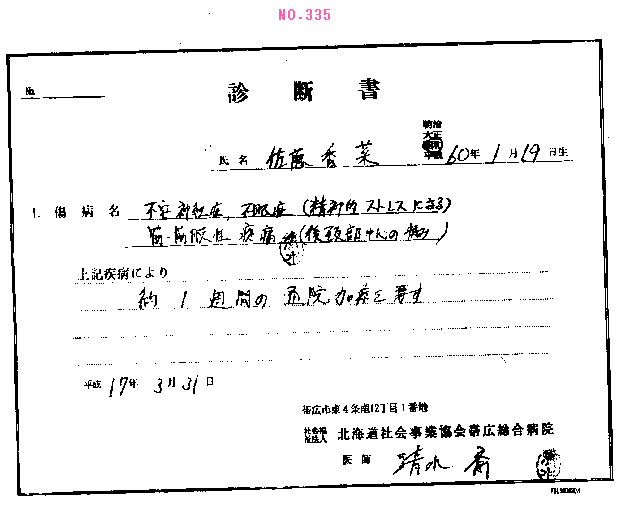 NO.335
No.
診断書
明治
大正
昭和
平成
氏名 佐藤香菜 60年1月19日生
1. 傷病名 不安神経症、不眠症(精神的ストレスによる)
筋筋膜性疼痛 (後頚部中心の痛み)
上記疾病により
約1週間の通院加療を要す
平成17年3月31日
帯広市東4条南12丁目1番地
社会福祉法人 北海道社会事業協会帯広総合病院
医師 清水